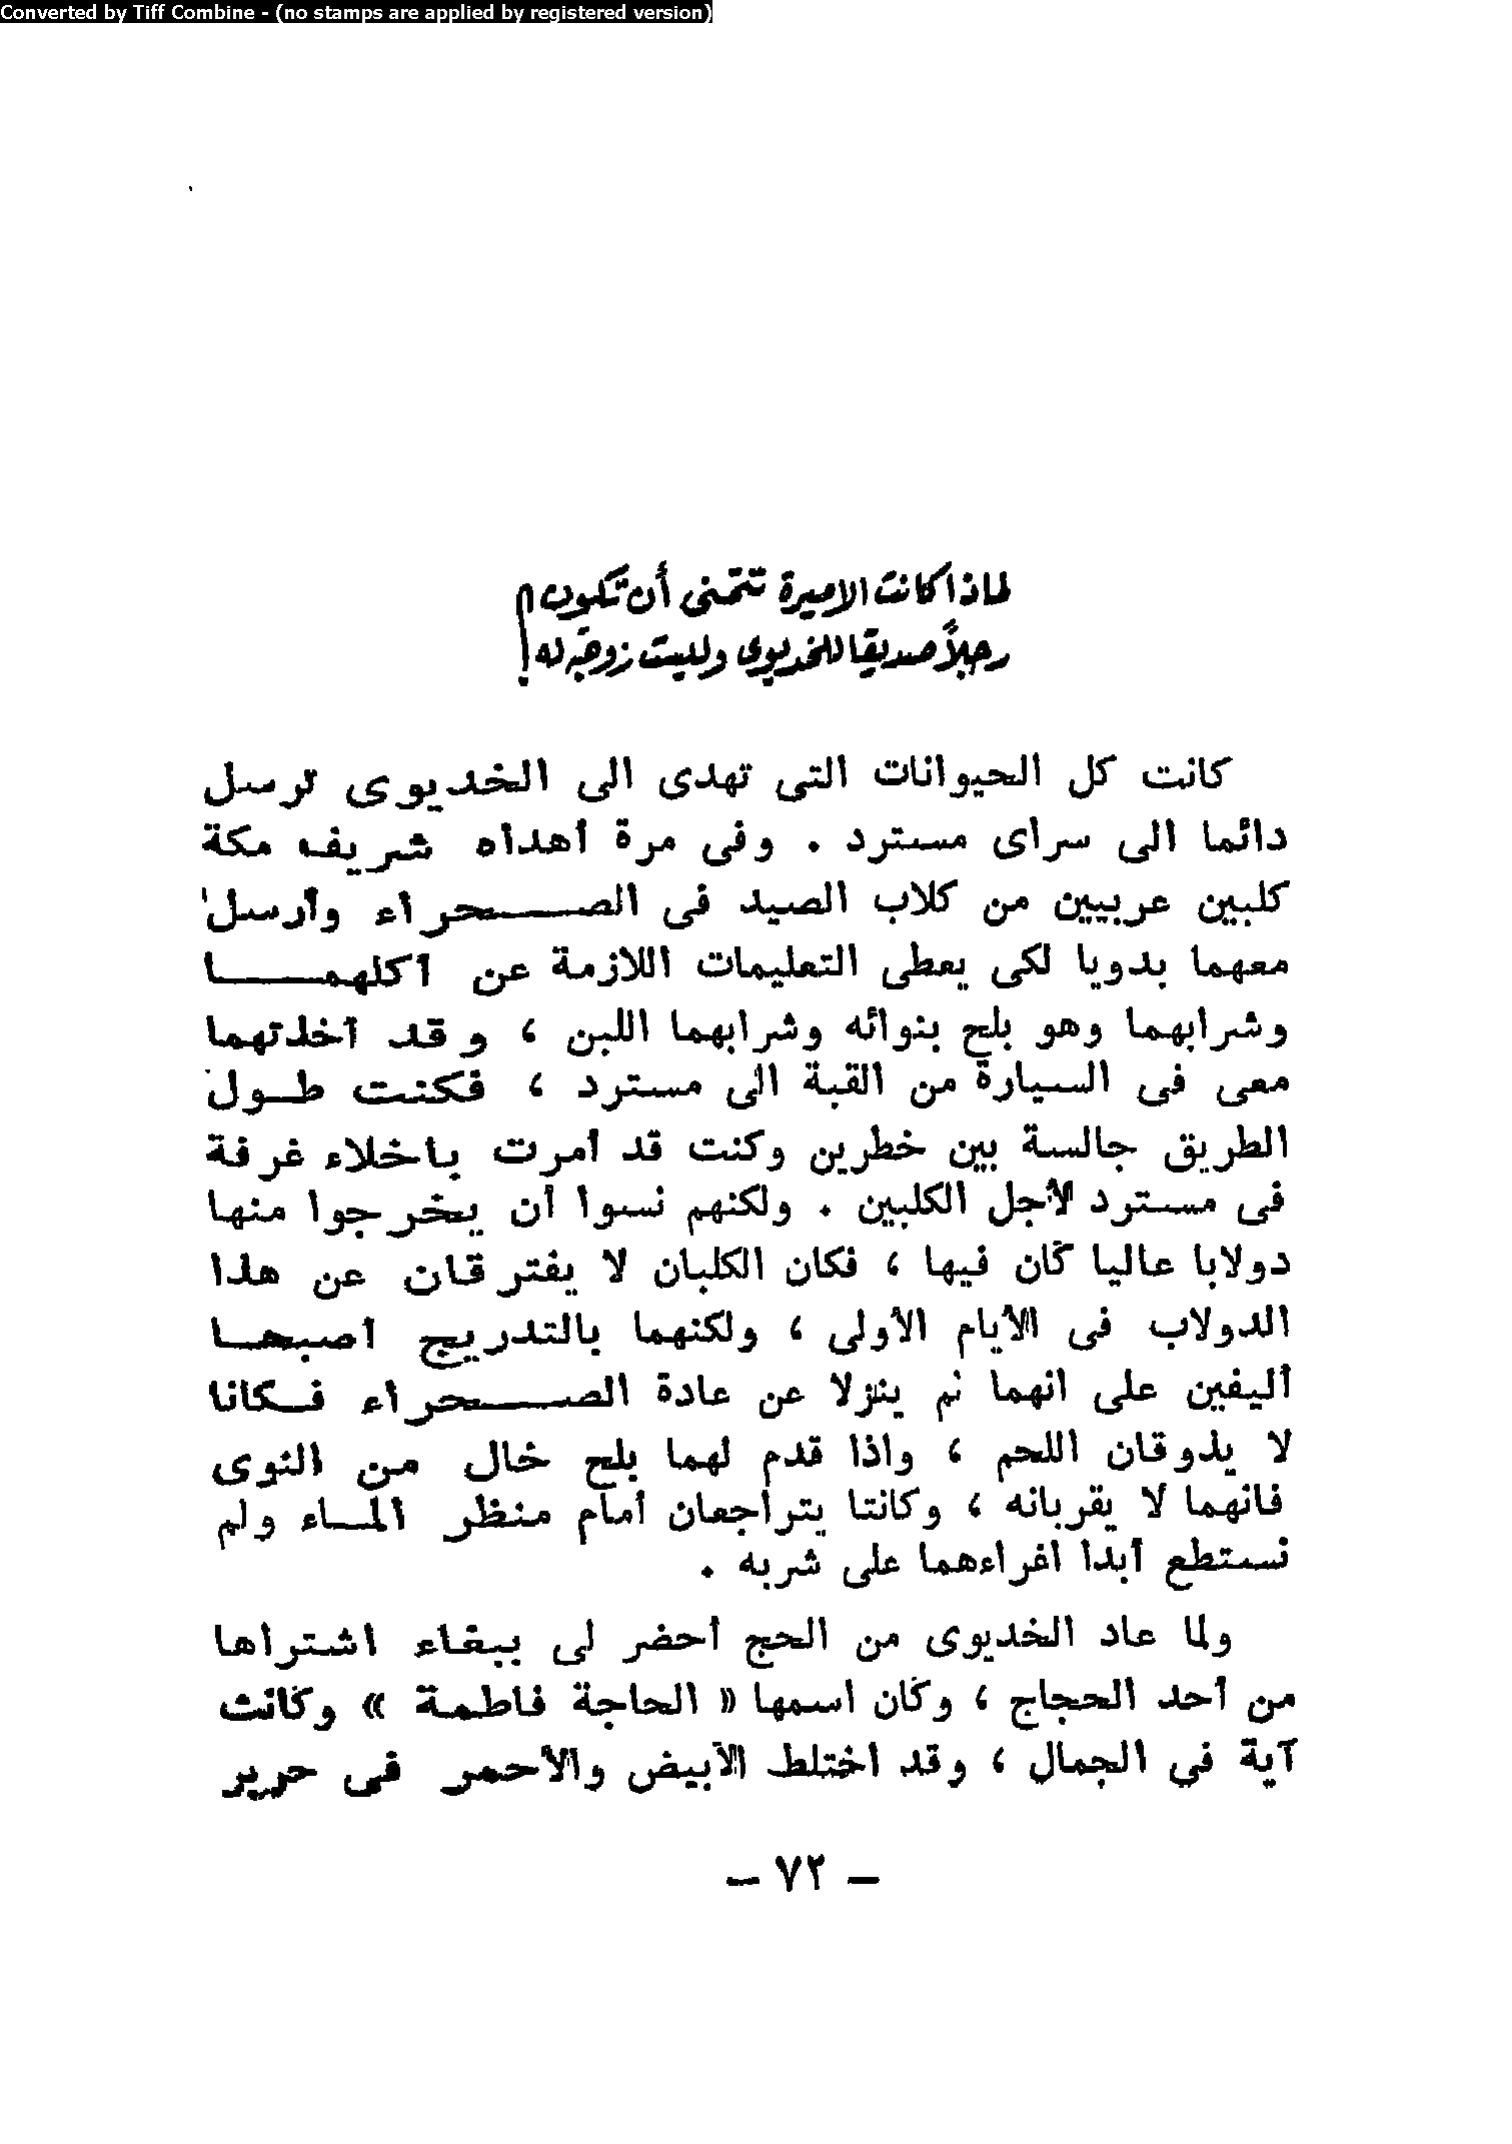 Converted by Tiff Combine - (no stamps are applied by registered version)
لماذا كانت الاميرة تتمنى أن تكون
رجلاً صديقا للخديوى وليست زوجة له !
كانت كل الحيوانات التى تهدى الى الخديوى ترسل
دائما الى سراى مسترد . وفى مرة أهداه شريف مكة
كلبين عربيين من كلاب الصيد فى الصحراء وأرسل
معهما بدويا لكى يعطى التعليمات اللازمة عن أكلهما
وشرابهما وهو بلح بنوائه وشرابهما اللبن ، وقد أخذتهما
معى فى السيارة من القبة الى مسترد ، فكنت طول
الطريق جالسة بين خطرين وكنت قد أمرت باخلاء غرفة
فى مسترد لأجل الكلبين . ولكنهم نسوا أن يخرجوا منها
دولابا عاليا كان فيها ، فكان الكلبان لا يفترقان عن هذا
الدولاب فى الأيام الأولى ، ولكنهما بالتدريج أصبحا
أليفين على انهما لم ينزلا عن عادة الصحراء فكانا
لا يذوقان اللحم ، واذا قدم لهما بلح خال من النوى
فانهما لا يقربانه ، وكانتا يتراجعان أمام منظر الماء ولم
نستطع أبدا اغراءهما على شربه .
ولما عاد الخديوى من الحج أحضر لى ببغاء اشتراها
من أحد الحجاج ، وكان اسمها « الحاجة فاطمة » وكانت
آية في الجمال ، وقد اختلط الأبيض والأحمر فى حرير
– ٧٢ –